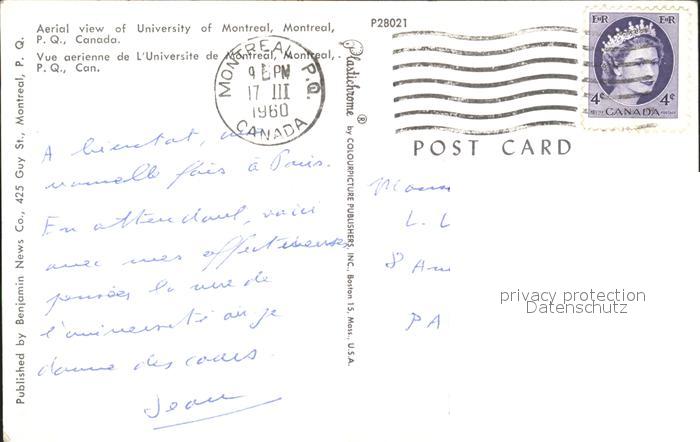 Aerial view of University of Montreal, Montreal,
P. Q., Canada.
Vue aerienne de L'Universite de Montreal, Montreal,
P. Q., Can.
P28021
MONTREAL P.Q.
9 PM
17 III
1960
CANADA
E II R
E II R
4¢ CANADA 4¢
POST CARD
A bientôt, une
nouvelle fois à Paris.
En attendant, voici
avec mes affectueuses
pensées la vue de
l'université où je
donne des cours.
Jean
Published by Benjamin News Co., 425 Guy St., Montreal, P. Q.
Plastichrome ® by COLOURPICTURE PUBLISHERS, INC., Boston 15, Mass., U.S.A.
L. L
8
PA
privacy protection
Datenschutz